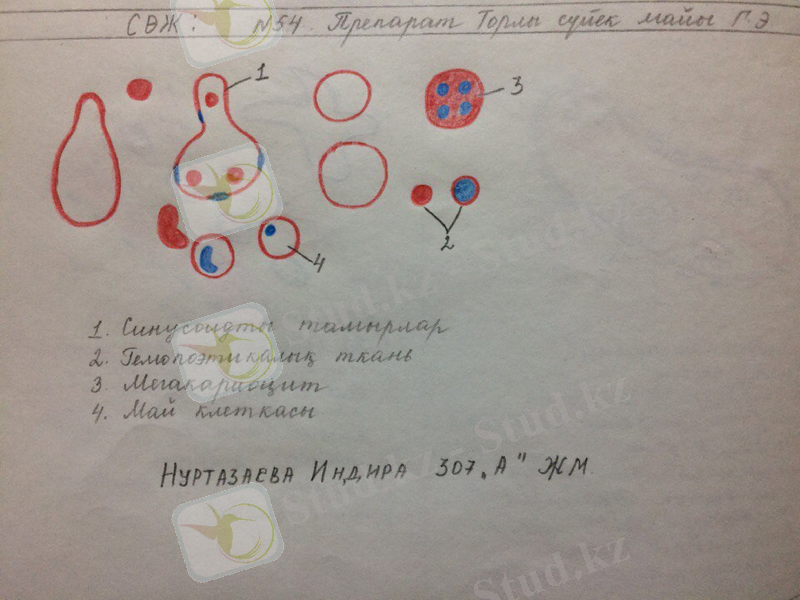 СӨЖ: №54. Препарат Торлы сүйек майы Г.Э
1
3
2
4
1. Синусоидты тамырлар
2. Гемопоэтикалық ткань
3. Мегакариоцит
4. Май клеткасы
Нуртазаева Индира 307 „А" ЖМ
Stud.kz
Stud.kz
Stud.kz
Stud.kz
Stud.kz